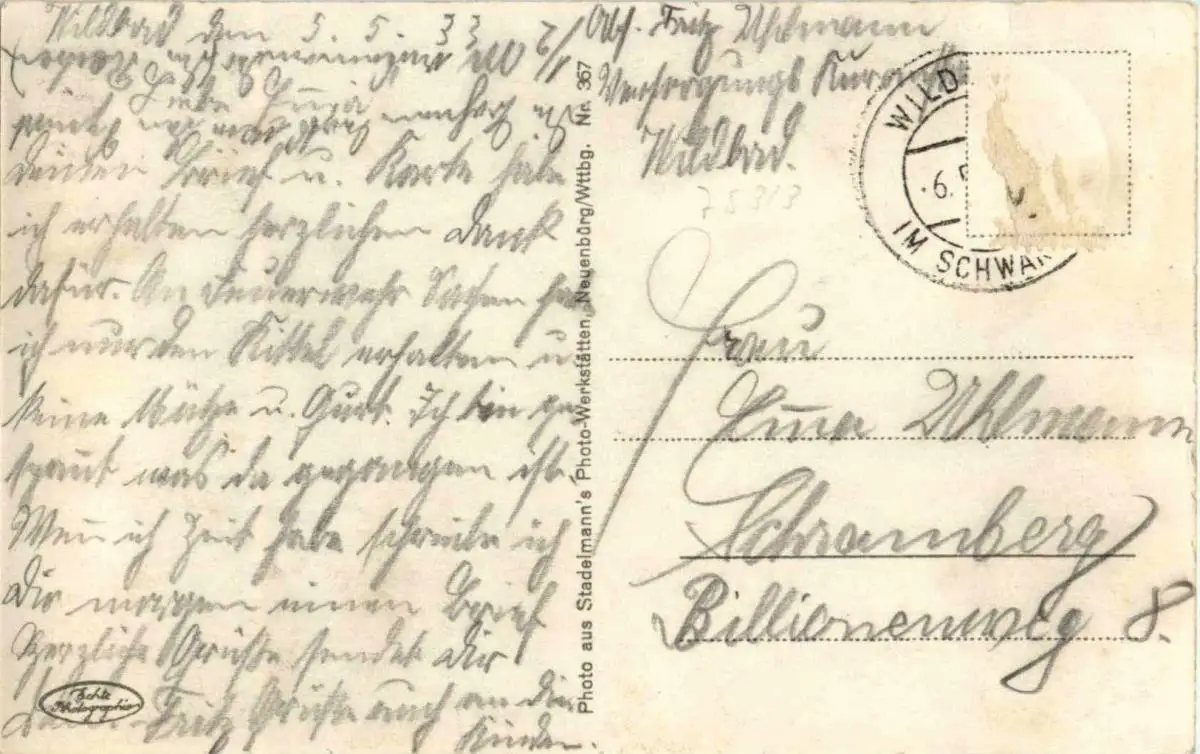 Wildbad den 5. 5. 33
Liebe Emma
Deinen Brief u. Karte habe
ich erhalten herzlichen Dank
dafür. An Feuerwehr Sachen hab
ich nur den Kittel erhalten u
keine Mütze u. Gurt. Ich bin ge
spant was da gegangen ist.
Wen̄ ich Zeit habe schreibe ich
Dir morgen einen Brief
Herzliche Grüße sendet Dir
Fritz Grüße auch an die
Kinder.
Echte
Photographie
Photo aus Stadelmann's Photo-Werkstätten, Neuenbürg/Wttbg. Nr. 367
Abs. Fritz Uhlmann
Versorgungs
Wildbad.
75313
WILD
6.
IM SCHWAR
Frau
Em̄a Uhlmann
Schramberg
Billionenweg 8.